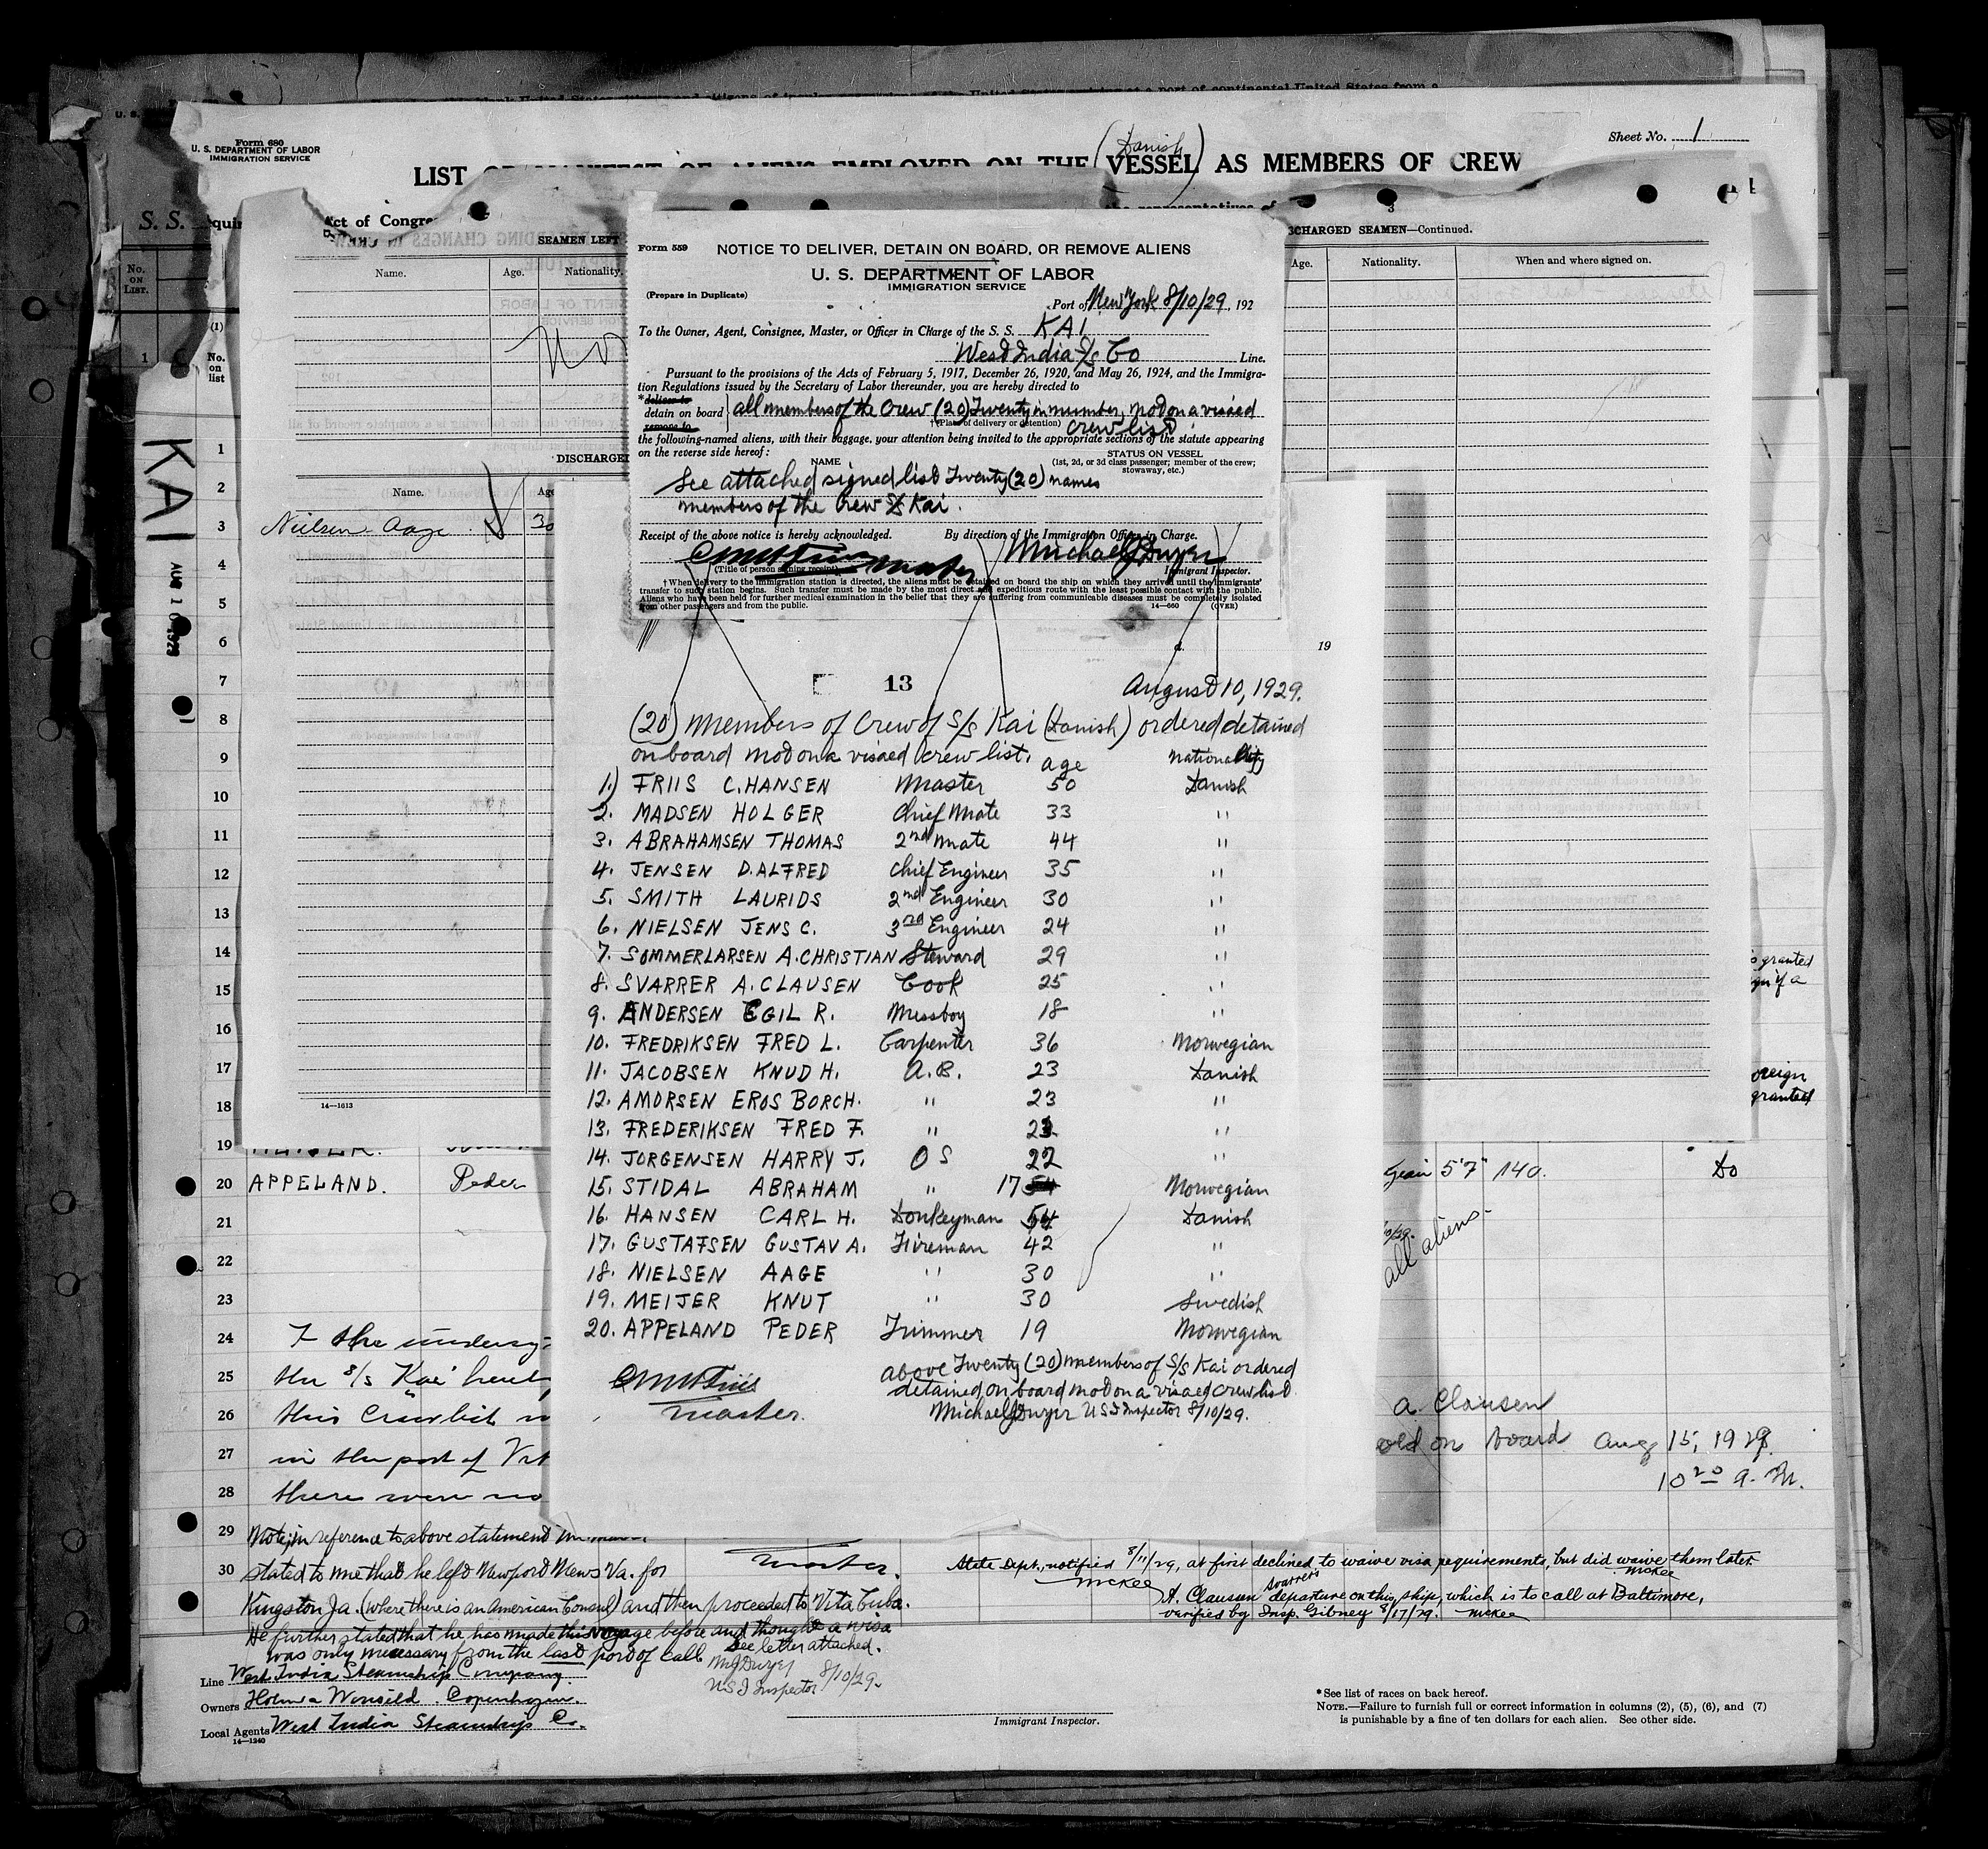 Form 680
U. S. DEPARTMENT OF LABOR
IMMIGRATION SERVICE
Sheet No. 1
(Danish)
LIST OR MANIFEST OF ALIENS EMPLOYED ON THE VESSEL AS MEMBERS OF CREW
S. S.
Act of Congre
representatives of
3
SEAMEN LEFT
Name. Age. Nationality.
DISCHARGED
Name. Ag
Nielsen Aage 30
14—1613
DISCHARGED SEAMEN—Continued.
Age. Nationality. When and where signed on.
No.
ON
LIST.
(1)
1
No.
on
list
KAI
AUG 10 1929
1
2
3
4
5
6
7
8
9
10
11
12
13
14
15
16
17
18
19
20 APPELAND. Peder
21
22
23
24 I the undersig
25 the S/s "Kai" hereb
26 this Crewlist w
27 in the port of Vit
28 there were no
29 Note; in reference to above statement
30 stated to me that he left Newport News Va. for
Kingston Ja. (where there is an American Consul) and then proceeded to Vita Cuba.
He further stated that he has made this voyage before and thought a visa
was only necessary from the last port of call
See letter attached.
MJ Dwyer 8/10/29.
U S I Inspector
Line West India Steamship Company.
Owners Holm & Wonsild Copenhagen.
Local Agents West India Steamship Co.
14—1240
Form 559
NOTICE TO DELIVER, DETAIN ON BOARD, OR REMOVE ALIENS
U. S. DEPARTMENT OF LABOR
IMMIGRATION SERVICE
(Prepare in Duplicate)
Port of New York 8/10/29, 192
To the Owner, Agent, Consignee, Master, or Officer in Charge of the S. S. KAI
West India S/s Co Line.
Pursuant to the provisions of the Acts of February 5, 1917, December 26, 1920, and May 26, 1924, and the Immigra-
tion Regulations issued by the Secretary of Labor thereunder, you are hereby directed to
*deliver to
detain on board all members of the Crew (20) Twenty in number, not on a visaed
remove to
†(Place of delivery or detention) crew list.
the following-named aliens, with their baggage, your attention being invited to the appropriate sections of the statute appearing
on the reverse side hereof:
NAME STATUS ON VESSEL
(1st, 2d, or 3d class passenger; member of the crew;
stowaway, etc.)
See attached signed list Twenty (20) names
members of the Crew S/s Kai.
Receipt of the above notice is hereby acknowledged. By direction of the Immigration Officer in Charge.
Master Michael J Dwyer
(Title of person signing receipt) Immigrant Inspector.
†When delivery to the immigration station is directed, the aliens must be detained on board the ship on which they arrived until the immigrants'
transfer to such station begins. Such transfer must be made by the most direct and expeditious route with the least possible contact with the public.
Aliens who have been held for further medical examination in the belief that they are suffering from communicable diseases must be completely isolated
from other passengers and from the public. 14—660 (OVER)
19
13
August 10, 1929.
(20) members of Crew of S/s Kai (Danish) ordered detained
on board not on a visaed crew list. age nationality
1.) FRIIS C. HANSEN Master 50 Danish
2. MADSEN HOLGER Chief Mate 33 "
3. ABRAHAMSEN THOMAS 2nd Mate 44 "
4. JENSEN D. ALFRED Chief Engineer 35 "
5. SMITH LAURIDS 2nd Engineer 30 "
6. NIELSEN JENS C. 3rd Engineer 24 "
7. SOMMERLARSEN A. CHRISTIAN Steward 29 "
8. SVARRER A. CLAUSEN Cook 25 "
9. ANDERSEN EGIL R. Messboy 18 "
10. FREDRIKSEN FRED L. Carpenter 36 Norwegian
11. JACOBSEN KNUD H. A.B. 23 Danish
12. AMORSEN EROS BORCH. " 23 "
13. FREDERIKSEN FRED F. " "
14. JORGENSEN HARRY J. OS 22 "
15. STIDAL ABRAHAM " 17 Norwegian
16. HANSEN CARL H. Donkeyman 54 Danish
17. GUSTAFSEN GUSTAV A. Fireman 42 "
18. NIELSEN AAGE " 30 "
19. MEIJER KNUT " 30 Swedish
20. APPELAND PEDER Trimmer 19 Norwegian
above Twenty (20) members of S/s Kai ordered
detained on board not on a visaed crew list.
Michael J Dwyer U S I Inspector 8/10/29.
Master.
s granted
sign if a
oreign
granted
gian 5'7" 140. Do
all aliens.
A. Clausen
on board Aug 15, 1929
10 20 a. m.
Master.
State Dept., notified 8/11/29, at first declined to waive visa requirements, but did waive them later.
McKee McKee
A. Clausen Svarrer's departure on this ship, which is to call at Baltimore,
verified by Insp. Gibney 8/17/29. McKee
Immigrant Inspector.
*See list of races on back hereof.
NOTE.—Failure to furnish full or correct information in columns (2), (5), (6), and (7)
is punishable by a fine of ten dollars for each alien. See other side.